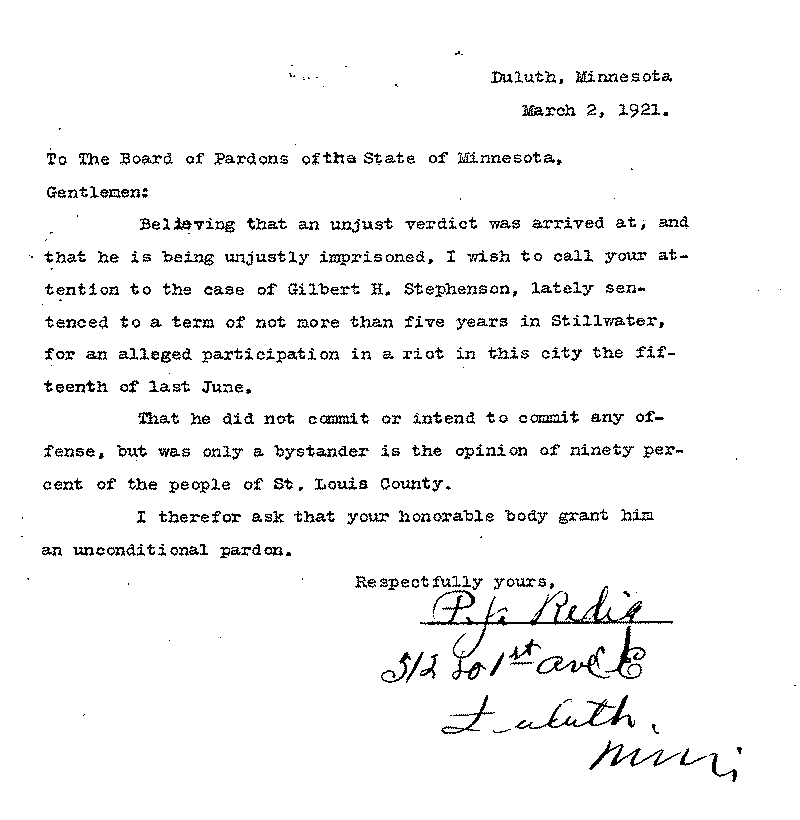 Duluth, Minnesota
March 2, 1921.
To The Board of Pardons ofthe State of Minnesota.
Gentlemen:
Believing that an unjust verdict was arrived at, and
that he is being unjustly imprisoned, I wish to call your at-
tention to the case of Gilbert H. Stephenson, lately sen-
tenced to a term of not more than five years in Stillwater,
for an alleged participation in a riot in this city the fif-
teenth of last June.
That he did not commit or intend to commit any of-
fense, but was only a bystander is the opinion of ninety per-
cent of the people of St. Louis County.
I therefor ask that your honorable body grant him
an unconditional pardon.
Respectfully yours,
P. J. Redig
312 So 1st ave E
Duluth,
Minn.